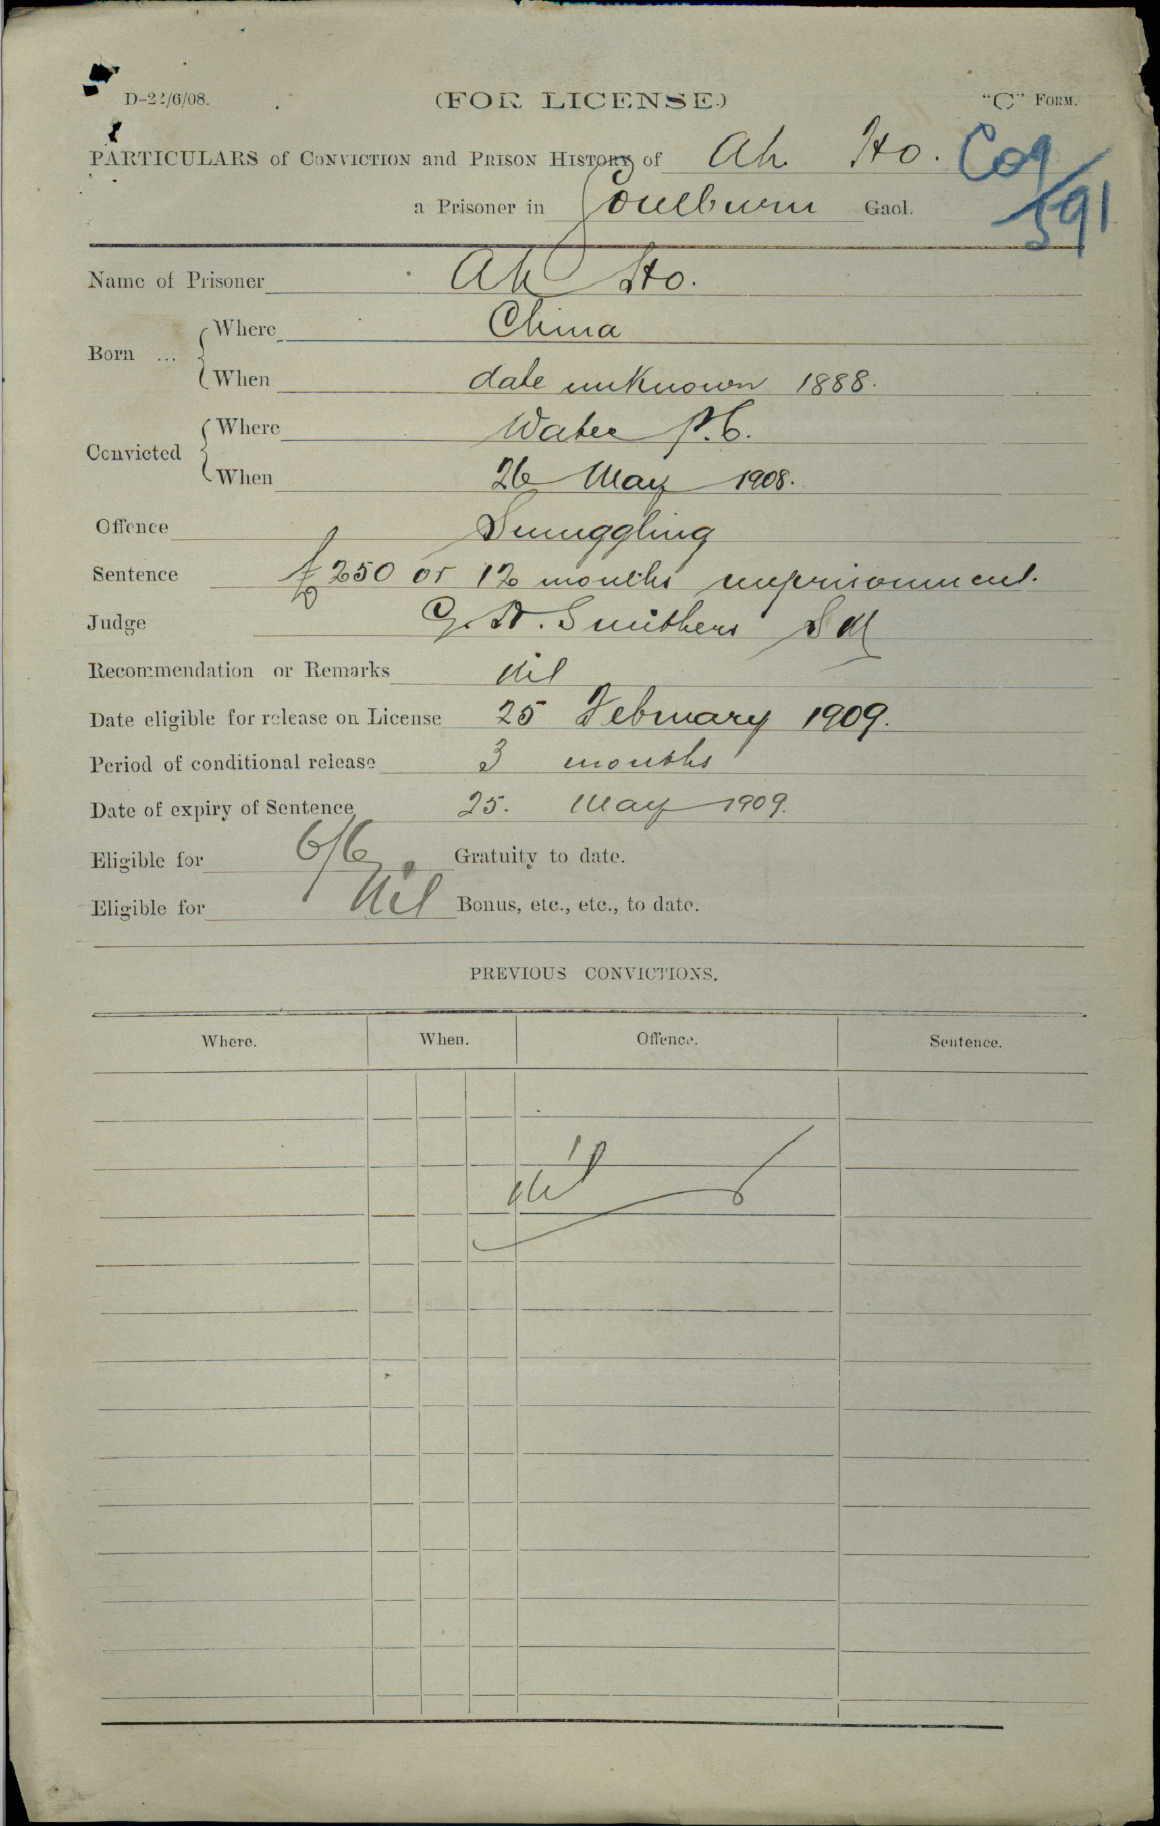 D-22/6/08. (FOR LICENSE.) "C" FORM.
PARTICULARS of CONVICTION and PRISON HISTORY of Ah Ho. C09/591
a Prisoner in Goulburn Gaol.
Name of Prisoner Ah Ho.
Born ... Where China
When date unknown 1888.
Convicted Where Water P.C.
When 26 May 1908.
Offence Smuggling
Sentence £250 or 12 months imprisonment.
Judge G. H. Smithers SM
Recommendation or Remarks Nil
Date eligible for release on License 25 February 1909.
Period of conditional release 3 months
Date of expiry of Sentence 25. May 1909.
Eligible for 6/6 Gratuity to date.
Eligible for Nil Bonus, etc., etc., to date.
PREVIOUS CONVICTIONS.
Where. When. Offence. Sentence.
Nil